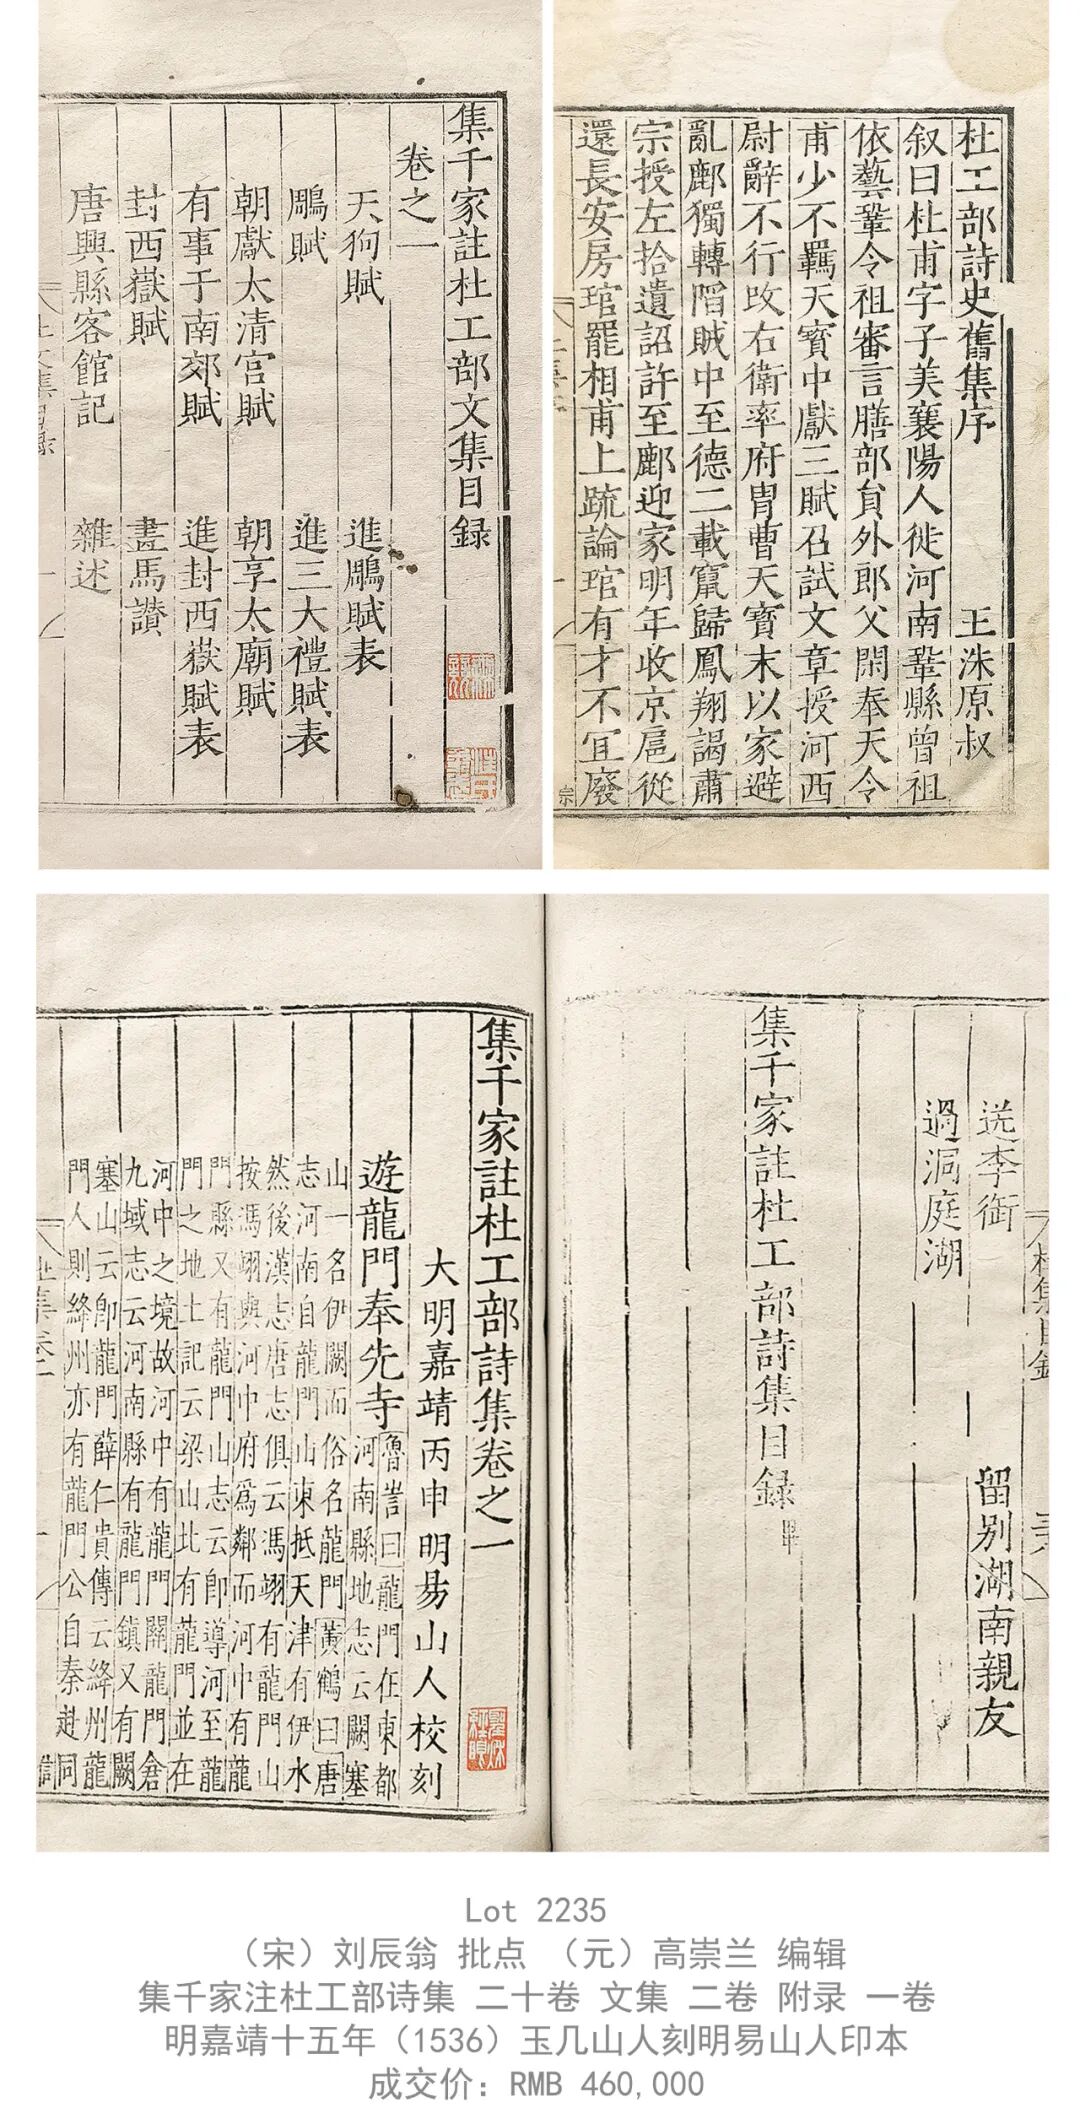 杜工部詩史舊集序
王洙原叔
叙曰杜甫字子美襄陽人徙河南鞏縣曾祖
依藝鞏令祖審言膳部負外郎父閑奉天令
甫少不羈天寳中獻三賦召試文章授河西
尉辭不行改右衛率府胄曹天寳末以家避
亂鄜獨轉䧟賊中至德二載竄歸鳳翔謁肅
宗授左拾遺詔許至鄜迎家明年收京扈從
還長安房琯罷相甫上疏論琯有才不宜廢
集千家註杜工部文集目録
卷之一
天狗賦 進鵰賦表
鵰賦 進三大禮賦表
朝獻太清宫賦 朝享太廟賦
有事于南郊賦 進封西嶽賦表
封西嶽賦 畫馬讃
唐興縣客館記 雜述
杜文集目録
一
送李衘 留别湖南親友
過洞庭湖
集千家註杜工部詩集目録畢
杜集目録
集千家註杜工部詩集卷之一
大明嘉靖丙申明昜山人校刻
遊龍門奉先寺
魯訔曰龍門在東都
河南縣地志云闕塞
山一名伊闕而俗名龍門黃鶴曰唐
志河南自龍門山東抵天津有伊水
然後漢志唐志俱云馮翊有龍門山
按馮翊與河中府爲鄰而河中有龍
門縣又有龍門山志云即導河至龍
門之地土記云梁山北有龍門並在
河中之境故河中有龍門關龍門倉
九域志云河南縣有龍門鎮又有闕
塞山云即龍門薛仁貴傳云絳州龍
門人則絳州亦有龍門公自秦赴同
Lot 2235
（宋）刘辰翁 批点 （元）高崇兰 编辑
集千家注杜工部诗集 二十卷 文集 二卷 附录 一卷
明嘉靖十五年（1536）玉几山人刻明易山人印本
成交价：RMB 460,000